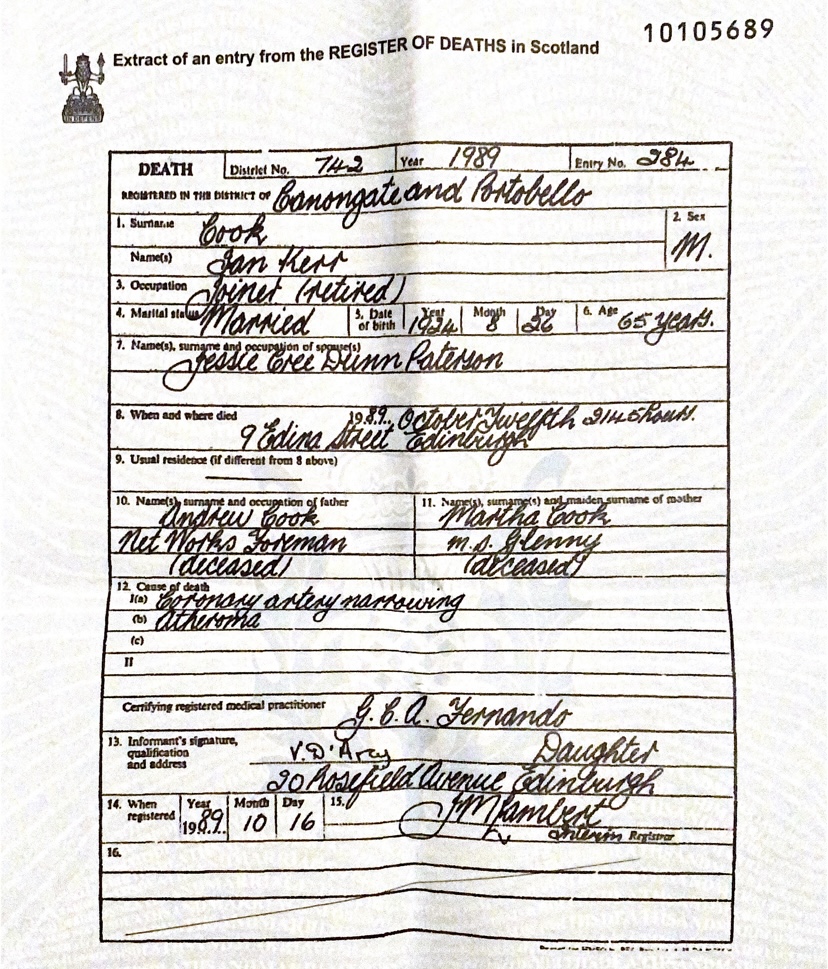 10105689
Extract of an entry from the REGISTER OF DEATHS in Scotland
IN DEFENS
DEATH District No. 742 Year 1989 Entry No. 284
REGISTERED IN THE DISTRICT OF Canongate and Portobello
1. Surname Cook 2. Sex M.
Name(s) Ian Kerr
3. Occupation Joiner (retired)
4. Marital status Married 5. Date of birth Year 1924 Month 8 Day 26 6. Age 65 years.
7. Name(s), surname and occupation of spouse(s)
Jessie Cree Dunn Paterson
8. When and where died 1989, October Twelfth 2145 hours.
9 Edina Street Edinburgh
9. Usual residence (if different from 8 above)
10. Name(s), surname and occupation of father
Andrew Cook
Net Works Foreman
(deceased)
11. Name(s), surname(s) and maiden surname of mother
Martha Cook
m.s. Glenny
(deceased)
12. Cause of death
I(a) Coronary artery narrowing
(b) Atheroma
(c)
II
Certifying registered medical practitioner G. C. A. Fernando
13. Informant's signature, qualification and address
V. D'Arcy Daughter
20 Rosefield Avenue Edinburgh
14. When registered Year 1989. Month 10 Day 16 15. J M Lambert
Interim Registrar
16.